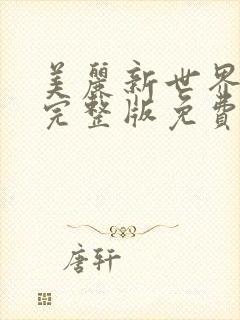 美麗新世界
完整版免費
唐轩